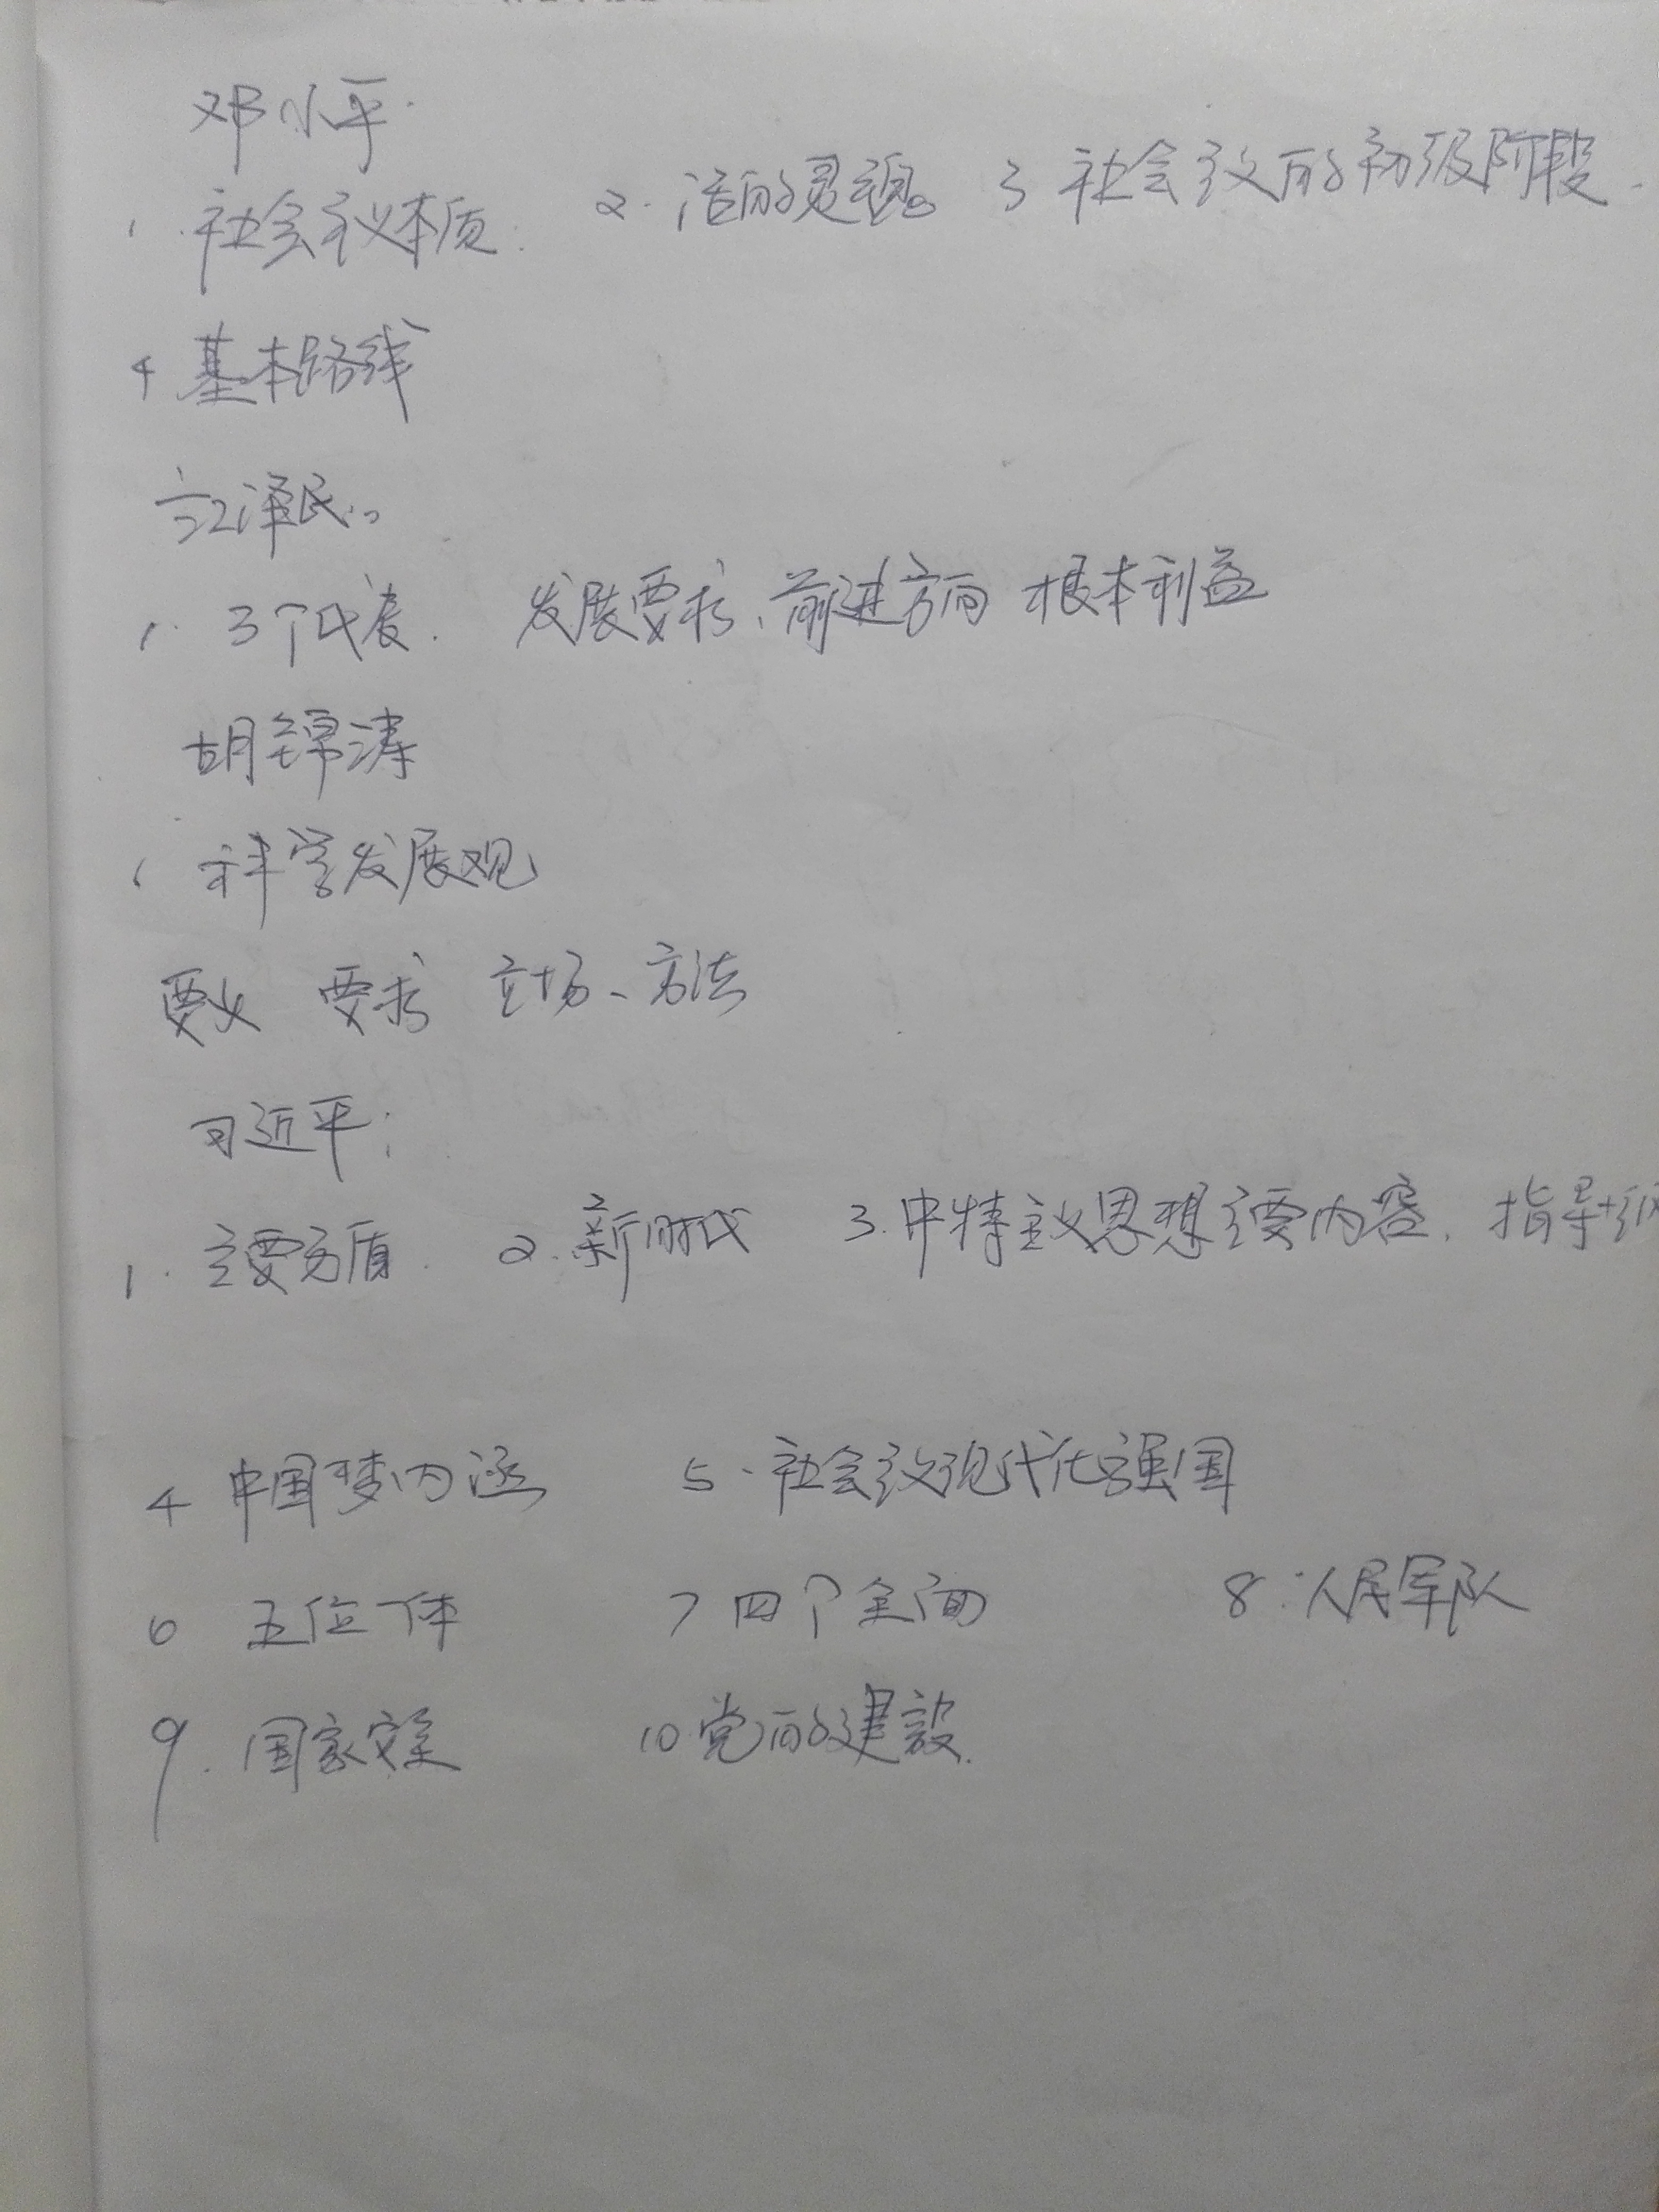 邓小平.
1. 社会主义本质. 2. 活的灵魂。 3 社会主义的初级阶段.
4 基本路线
江泽民:
1. 3个代表. 发展要求、前进方向 根本利益
胡锦涛
1 科学发展观
要义 要求 立场、方法
习近平:
1. 主要矛盾. 2. 新时代 3. 中特主义思想主要内容. 指导
4 中国梦内涵 5. 社会主义现代化强国
6 五位一体 7 四个全面 8. 人民军队
9. 国家安全 10 党的建设.